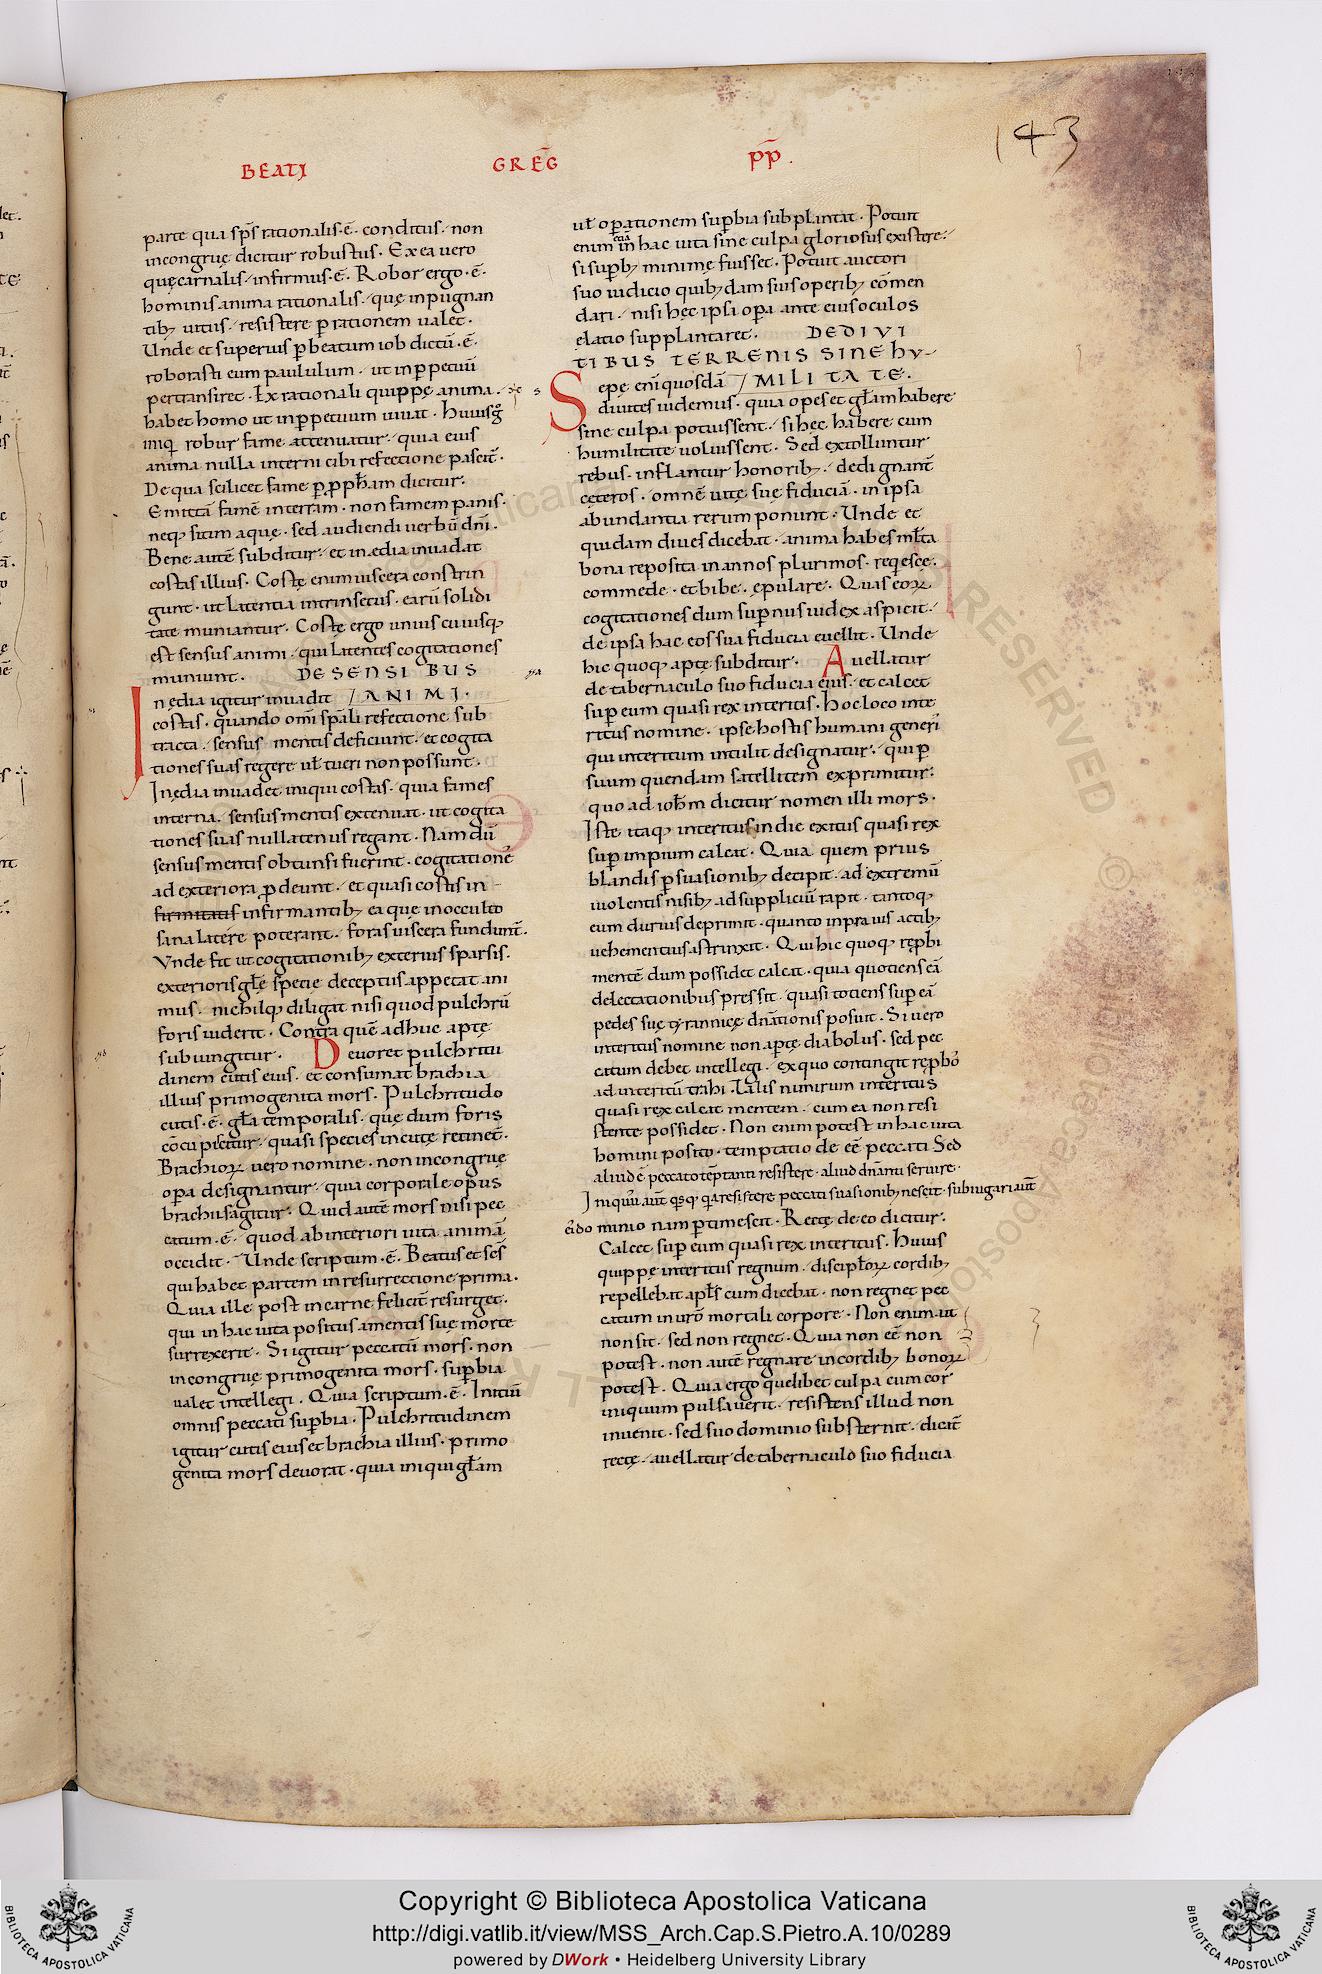 143
BEATI GREḠ P̄P̄.
parte qua sp̄s rationalis·ē· conditus· non
incongruę dicitur robustus· Ex ea uero
quę carnalis· infirmus·ē· Robor ergo·ē·
hominis anima rationalis· quę inpugnan
tib; uitiis· resistere p̱ rationem ualet·
Unde et superius p̱ beatum iob dictū·ē·
roborasti eum paululum· ut inp̱petuū
pertransiret· Ex rationali quippę anima·
habet homo ut inp̱petuum uiuat· Huius
iniq robur fame attenuatur· quia eius
anima nulla interni cibi refectione pascit̄·
De qua scilicet fame p̱ ꝓph̄am dicitur·
Emittā famē interram· non famem panis·
neq; sitim aquę· sed audiendi uerbū dn̄i·
Bene autē subditur· et inedia inuadat
costas illius· Costę enim uiscera constrin
gunt· ut latentia intrinsecus· earū solidi
tate muniantur· Costę ergo unius cuiusq;
est sensus animi· qui latentes cogitationes
muniunt· DE SENSIBUS
Inedia igitur inuadit / ANIMI·
costas· quando om̄i sp̄ali refectione sub
tracta· sensus mentis deficiunt· et cogita
tiones suas regere ul̄ tueri non possunt·
Inedia inuadet iniqui costas· quia fames
interna· sensus mentis extenuat· ut cogita
tiones suas nullatenus regant· Nam dū
sensus mentis obtunsi fuerint· cogitationē
ad exteriora ꝓdeunt· et quasi costis in-
firmitatis infirmantib; ea quę inocculto
sana latere poterant· foras uiscera fundunt̄·
Vnde fit ut cogitationib; exterius sparsis·
exterioris gl̄ę specię deceptus appetat ani
mus· nichilq; diligat nisi quod pulchrū
foris uiderit· Contra quē adhuc aptę
subiungitur· Deuoret pulchritu
dinem cutis eius· et consumat brachia
illius primogenita mors· Pulchritudo
cutis·ē· gl̄a temporalis· quę dum foris
cōcupiscitur· quasi species incutę retinet̄·
Brachioꝝ uero nomine· non incongruę
op̱a designantur· quia corporale opus
brachiis agitur· Quid autē mors nisi pec
catum·ē· quod ab interiori uita animā
occidit· Unde scriptum·ē· Beatus et sc̄s
qui habet partem in resurrectione prima·
Quia ille post in carne felicit̄ resurget·
qui in hac uita positus a mentis suę morte
surrexerit· Si igitur peccatū mors· non
incongruę primogenita mors· sup̱bia
ualet intellegi· Quia scriptum·ē· Initiū
omnis peccati sup̱bia· Pulchritudinem
igitur cutis eius et brachia illius· primo
genita mors deuorat· quia iniqui gl̄am
ul̄ op̱ationem sup̱bia subplantat· Potuit
enim etiā in hac uita sine culpa gloriosus existere·
si sup̱b; minimę fuisset· Potuit auctori
suo iudicio quib;dam suis operib; cōmen
dari· nisi hęc ipsa op̱a ante eius oculos
elatio supplantaret· DE DIVI
TIBUS TERRENIS SINE HV-
Sepę eni quosdā / MILITATE·
diuites uidemus· quia opes et gl̄am habere
sine culpa potuissent· si hęc habere cum
humilitate uoluissent· Sed extolluntur
rebus· inflantur honorib;· dedignant̄
cęteros· omnē uitę suę fiduciā· in ipsa
abundantia rerum ponunt· Unde et
quidam diues dicebat· anima habes ml̄ta
bona reposita in annos plurimos· reqesce·
commede· et bibe· epulare· Quas eoꝝ
cogitationes dum sup̱nus iudex aspicit·
de ipsa hac eos sua fiducia euellit· Unde
hic quoq; aptę subditur· Auellatur
de tabernaculo suo fiducia eius· et calcet
sup̱ eum quasi rex interitus· Hoc loco inte
ritus nomine· ipse hostis humani generi
qui interitum intulit designatur· qui p̱
suum quendam satellitem exprimitur·
quo ad ioh̄m dicitur nomen illi mors·
Iste itaq; interitus in die exitus quasi rex
sup̱ impium calcat· Quia quem prius
blandis p̱suasionib; decipit· ad extremū
uiolentis nisib; ad suppliciū rapit· tantoq;
eum durius deprimit· quanto in prauis actib;
uehementius astrinxit· Qui hic quoq; rep̱bi
mentē dum possidet calcat· quia quotiens eā
delectationibus pressit· quasi totiens sup̱ eā
pedes suę tyrannicę dn̄ationis posuit· Si uero
interitus nomine non aptę diabolus· sed pec
catum debet intellegi· ex quo contingit rep̱bos
ad interitū trahi· Talis nimirum interitus
quasi rex calcat mentem· cum ea non resi
stente possidet· Non enim potest in hac uita
homini posito· temptatio de eē peccati Sed
aliud ē peccato tēptanti resistere· aliud dn̄anti seruire·
Iniquus aut̄ qsq; qa resistere peccati suasionib; nescit· subiugari aut̄
eidominio nam p̱timescit· Rectę de eo dicitur·
Calcet sup̱ eum quasi rex interitus· Huius
quippę interitus regnum· discipl̄oꝝ cordib;
repellebat apl̄s cum dicebat· non regnet pec
catum in ur̄o mortali corpore· Non enim ait
non sit· sed non regnet· Quia non eē non
potest· non autē regnare in cordib; bonoꝝ
potest· Quia ergo quelibet culpa cum cor
iniquum pulsauerit· resistens illud non
inuenit· sed suo dominio substernit· dicit̄
rectę· auellatur de tabernaculo suo fiducia
Copyright © Biblioteca Apostolica Vaticana
http://digi.vatlib.it/view/MSS_Arch.Cap.S.Pietro.A.10/0289
powered by DWork • Heidelberg University Library
BIBLIOTECA APOSTOLICA VATICANA
BIBLIOTECA APOSTOLICA VATICANA